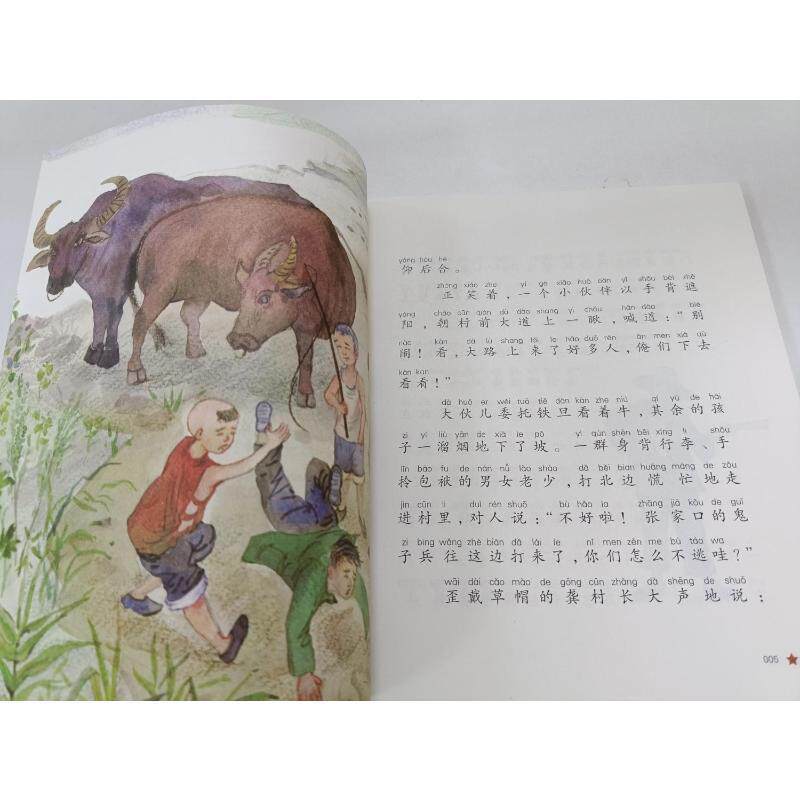 yǎng hòu hé
仰后合。
zhèng xiào zhe yí ge xiǎo huǒ bàn yǐ shǒu bèi zhē
正笑着，一个小伙伴以手背遮
yáng cháo cūn qián dà dào shang yì chǒu hǎn dào bié
阳，朝村前大道上一瞅，喊道：“别
nào kàn dà lù shang lái le hǎo duō rén ǎn men xià qù
闹！看，大路上来了好多人，俺们下去
kàn kan
看看！”
dà huǒ er wěi tuō tiě dàn kān zhe niú qí yú de hái
大伙儿委托铁旦看着牛，其余的孩
zi yí liù yān de xià le pō yì qún shēn bēi xíng li shǒu
子一溜烟地下了坡。一群身背行李、手
līn bāo fu de nán nǚ lǎo shào dǎ běi bian huāng máng de zǒu
拎包袱的男女老少，打北边慌忙地走
jìn cūn li duì rén shuō bù hǎo la zhāng jiā kǒu de guǐ
进村里，对人说：“不好啦！张家口的鬼
zi bīng wǎng zhè biān dǎ lái le nǐ men zěn me bù táo wa
子兵往这边打来了，你们怎么不逃哇？”
wāi dài cǎo mào de gōng cūn zhǎng dà shēng de shuō
歪戴草帽的龚村长大声地说：
005